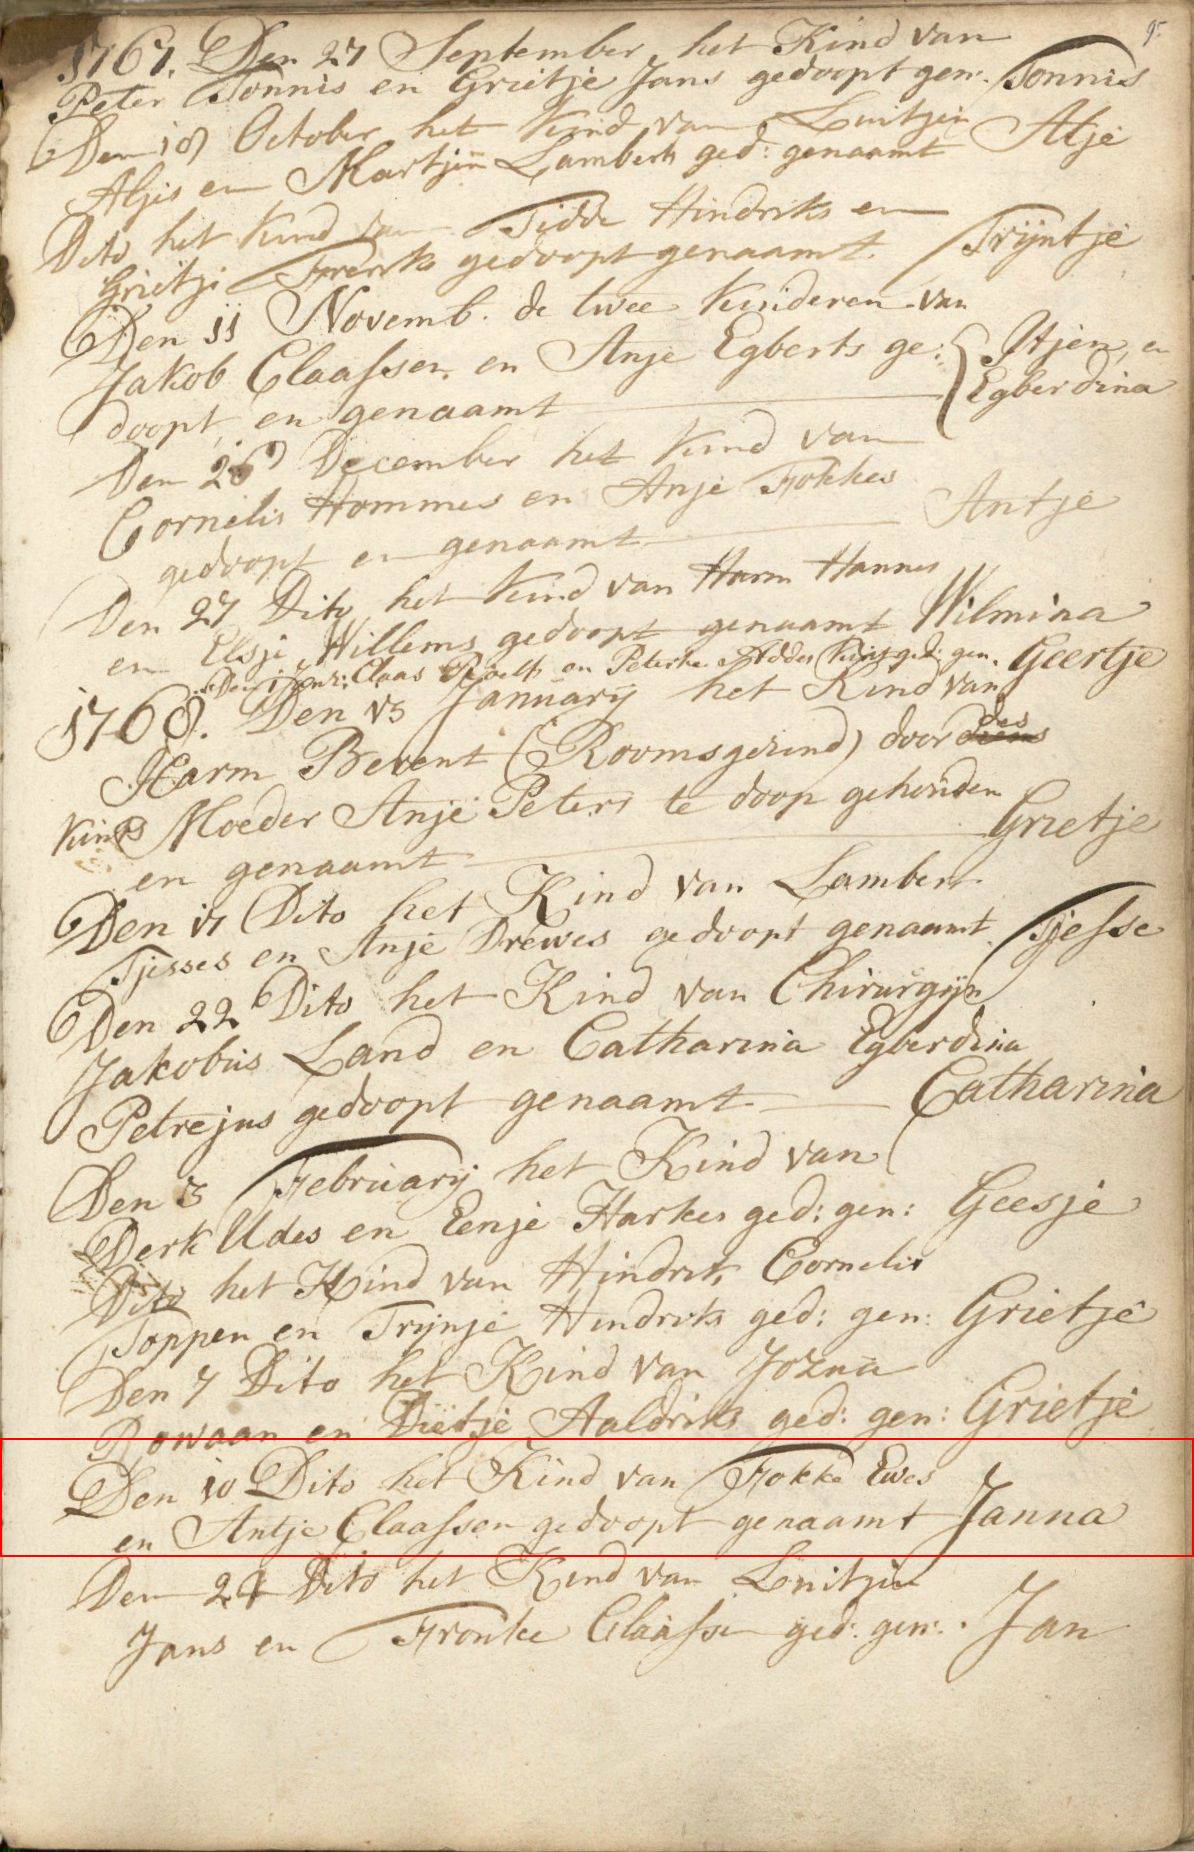 1767. Den 27 September, het Kind van
Peter Tonnis en Grietje Jans gedoopt gen. Tonnis
Den 18 October het Kind van Luitjen
Aljis en Martjen Lamberts ged: genaamt Alje
Dito het Kind van Tidde Hindriks en
Grietje Frerirks gedoopt genaamt. Trijntje
Den 11 Novemb. de twee Kinderen van
Jakob Claassen en Anje Egberts ge: Itjen, en
doopt en genaamt Egberdina
Den 26 December het Kind van
Cornelis Hommes en Anje Fokkes
gedoopt en genaamt Antje
Den 27 Dito het Kind van Harm Hannes
en Elsje Willems gedoopt genaamt Wilmina
Den 1 Claas Roelfs en Peterke Kint ged: gen. Geertje
1768. Den 13 Januarij het Kind van
Harm Berent (Roomsgezind) door des
Kinds Moeder Anje Peters te doop gehouden
en genaamt Grietje
Den 17 Dito het Kind van Lambert
Tjesses en Anje Drewes gedoopt genaamt Tjesse
Den 22 Dito het Kind van Chirurgijn
Jakobus Land en Catharina Egberdina
Petrejus gedoopt genaamt Catharina
Den 3 February het Kind van
Derk Udes en Eenje Harkes ged: gen: Geesje
Dito het Kind van Hindrik Cornelis
Toppen en Trijnje Hindriks ged: gen: Grietje
Den 7 Dito het Kind van Jozua
Rowaan en Dietje Aaldriks ged: gen: Grietje
Den 10 Dito het Kind van Fokke Ewes
en Antje Claassen gedoopt genaamt Janna
Den 24 Dito het Kind van Luitjen
Jans en Frouke Claasse ged: gen: Jan